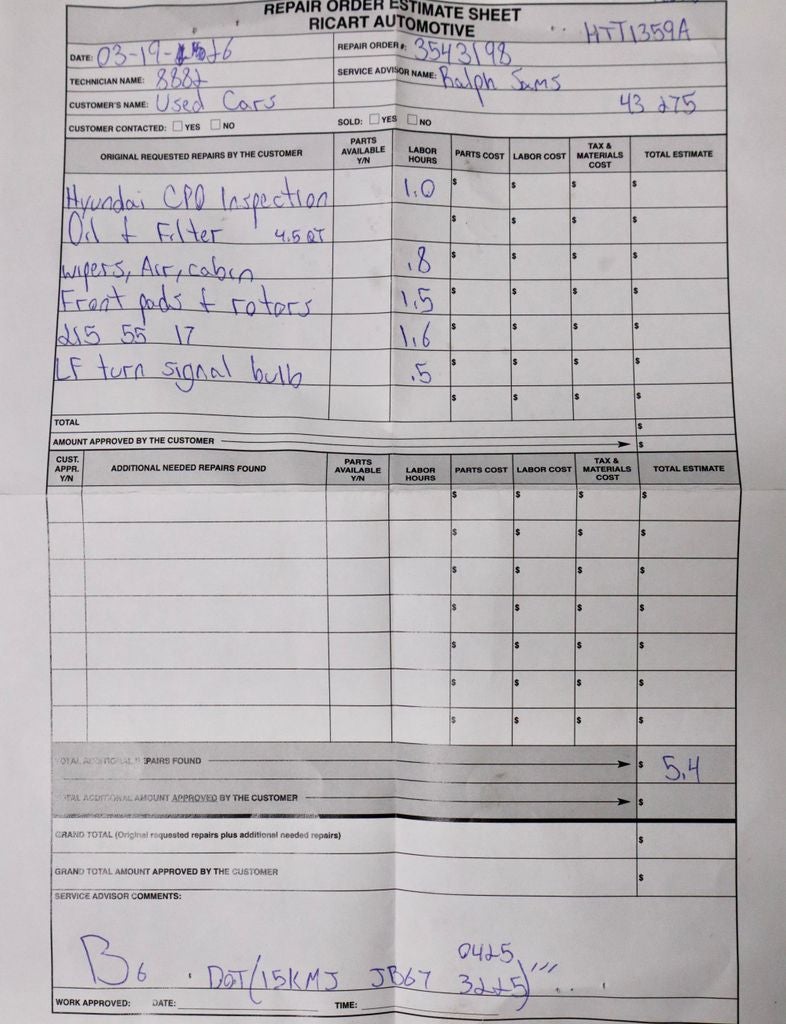 REPAIR ORDER ESTIMATE SHEET
RICART AUTOMOTIVE
HTT1359A
DATE: 03-19-26
REPAIR ORDER #: 3543198
TECHNICIAN NAME: 8882
SERVICE ADVISOR NAME: Ralph Sams
CUSTOMER'S NAME: Used Cars
43 275
CUSTOMER CONTACTED: YES NO
SOLD: YES NO
ORIGINAL REQUESTED REPAIRS BY THE CUSTOMER PARTS AVAILABLE Y/N LABOR HOURS PARTS COST LABOR COST TAX & MATERIALS COST TOTAL ESTIMATE
Hyundai CPO Inspection 1.0 $ $ $ $
Oil + Filter 4.5 QT $ $ $ $
wipers, Air, cabin .8 $ $ $ $
Front pads + rotors 1.5 $ $ $ $
215 55 17 1.6 $ $ $ $
LF turn signal bulb .5 $ $ $ $
$ $ $ $
TOTAL $
AMOUNT APPROVED BY THE CUSTOMER $
CUST. APPR. Y/N ADDITIONAL NEEDED REPAIRS FOUND PARTS AVAILABLE Y/N LABOR HOURS PARTS COST LABOR COST TAX & MATERIALS COST TOTAL ESTIMATE
$ $ $ $
$ $ $ $
$ $ $ $
$ $ $ $
$ $ $ $
$ $ $ $
$ $ $ $
TOTAL ADDITIONAL REPAIRS FOUND $ 5.4
TOTAL ADDITIONAL AMOUNT APPROVED BY THE CUSTOMER $
GRAND TOTAL (Original requested repairs plus additional needed repairs) $
GRAND TOTAL AMOUNT APPROVED BY THE CUSTOMER $
SERVICE ADVISOR COMMENTS:
0425
B6 DOT(15KMJ JB67 3225)
WORK APPROVED: DATE: TIME: